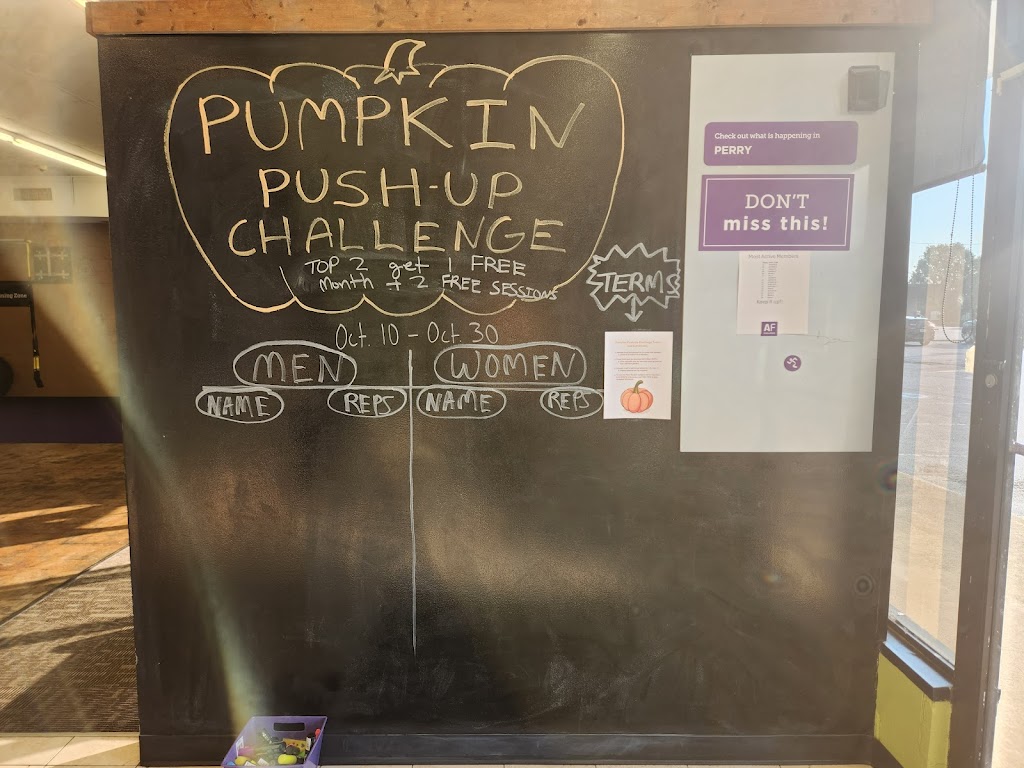 PUMPKIN
PUSH-UP
CHALLENGE
TOP 2 get 1 FREE
Month + 2 FREE SESSIONS
Oct. 10 - Oct. 30
MEN
WOMEN
NAME
REPS
NAME
REPS
TERMS
Check out what is happening in
PERRY
DON'T
miss this!
Most Active Members
AF